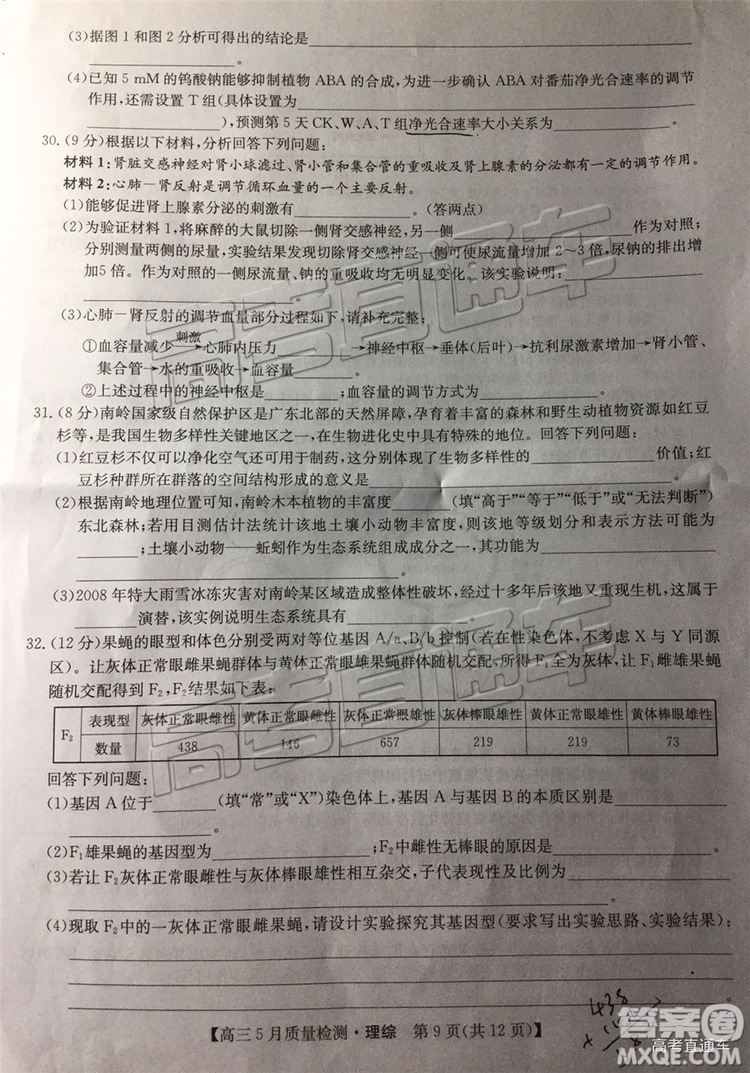 (3)据图1和图2分析可得出的结论是
。
(4)已知5 mM的钨酸钠能够抑制植物ABA的合成,为进一步确认ABA对番茄净光合速率的调节
作用,还需设置T组(具体设置为
),预测第5天CK、W、A、T组净光合速率大小关系为 。
30.(9分)根据以下材料,分析回答下列问题:
材料1:肾脏交感神经对肾小球滤过、肾小管和集合管的重吸收及肾上腺素的分泌都有一定的调节作用。
材料2:心肺—肾反射是调节循环血量的一个主要反射。
(1)能够促进肾上腺素分泌的刺激有 。(答两点)
(2)为验证材料1,将麻醉的大鼠切除一侧肾交感神经,另一侧 作为对照;
分别测量两侧的尿量,实验结果发现切除肾交感神经一侧可使尿流量增加2~3倍,尿钠的排出增
加5倍。作为对照的一侧尿流量、钠的重吸收均无明显变化。该实验说明:
。
(3)心肺—肾反射的调节血量部分过程如下,请补充完整:
①血容量减少刺激→心肺内压力 →神经中枢→垂体(后叶)→抗利尿激素增加→肾小管、
集合管→水的重吸收→血容量 。
②上述过程中的神经中枢是 ;血容量的调节方式为 。
31.(8分)南岭国家级自然保护区是广东北部的天然屏障,孕育着丰富的森林和野生动植物资源如红豆
杉等,是我国生物多样性关键地区之一,在生物进化史中具有特殊的地位。回答下列问题:
(1)红豆杉不仅可以净化空气还可用于制药,这分别体现了生物多样性的 价值;红
豆杉种群所在群落的空间结构形成的意义是 。
(2)根据南岭地理位置可知,南岭木本植物的丰富度 (填“高于”“等于”“低于”或“无法判断”)
东北森林;若用目测估计法统计该地土壤小动物丰富度,则该地等级划分和表示方法可为
;土壤小动物——蚯蚓作为生态系统组成成分之一,其功能为
。
(3)2008年特大雨雪冰冻灾害对南岭某区域造成整体性破坏,经过十多年后该地又重现生机,这属于
演替,该实例说明生态系统具有 。
32.(12分)果蝇的眼型和体色分别受两对等位基因A/a、B/b控制(若在性染色体,不考虑X与Y同源
区)。让灰体正常眼雌果蝇群体与黄体正常眼雄果蝇群体随机交配,所得F₁全为灰体,让F₁雌雄果蝇
随机交配得到F₂,F₂结果如下表:
F₂ 表现型 灰体正常眼雌性 黄体正常眼雌性 灰体正常眼雄性 灰体棒眼雄性 黄体正常眼雄性 黄体棒眼雄性
数量 438 146 657 219 219 73
回答下列问题:
(1)基因A位于 (填“常”或“X”)染色体上,基因A与基因B的本质区别是
。
(2)F₁雄果蝇的基因型为 ;F₂中雌性无棒眼的原因是 。
(3)若让F₂灰体正常眼雌性与灰体棒眼雄性相互杂交,子代表现性及比例为
。
(4)现取F₂中的一灰体正常眼雌果蝇,请设计实验探究其基因型(要求写出实验思路、实验结果):
。
【高三5月质量检测·理综 第9页(共12页)】
438
高考直通车
答案圈
MXQE.COM
高考直通车
高考直通车